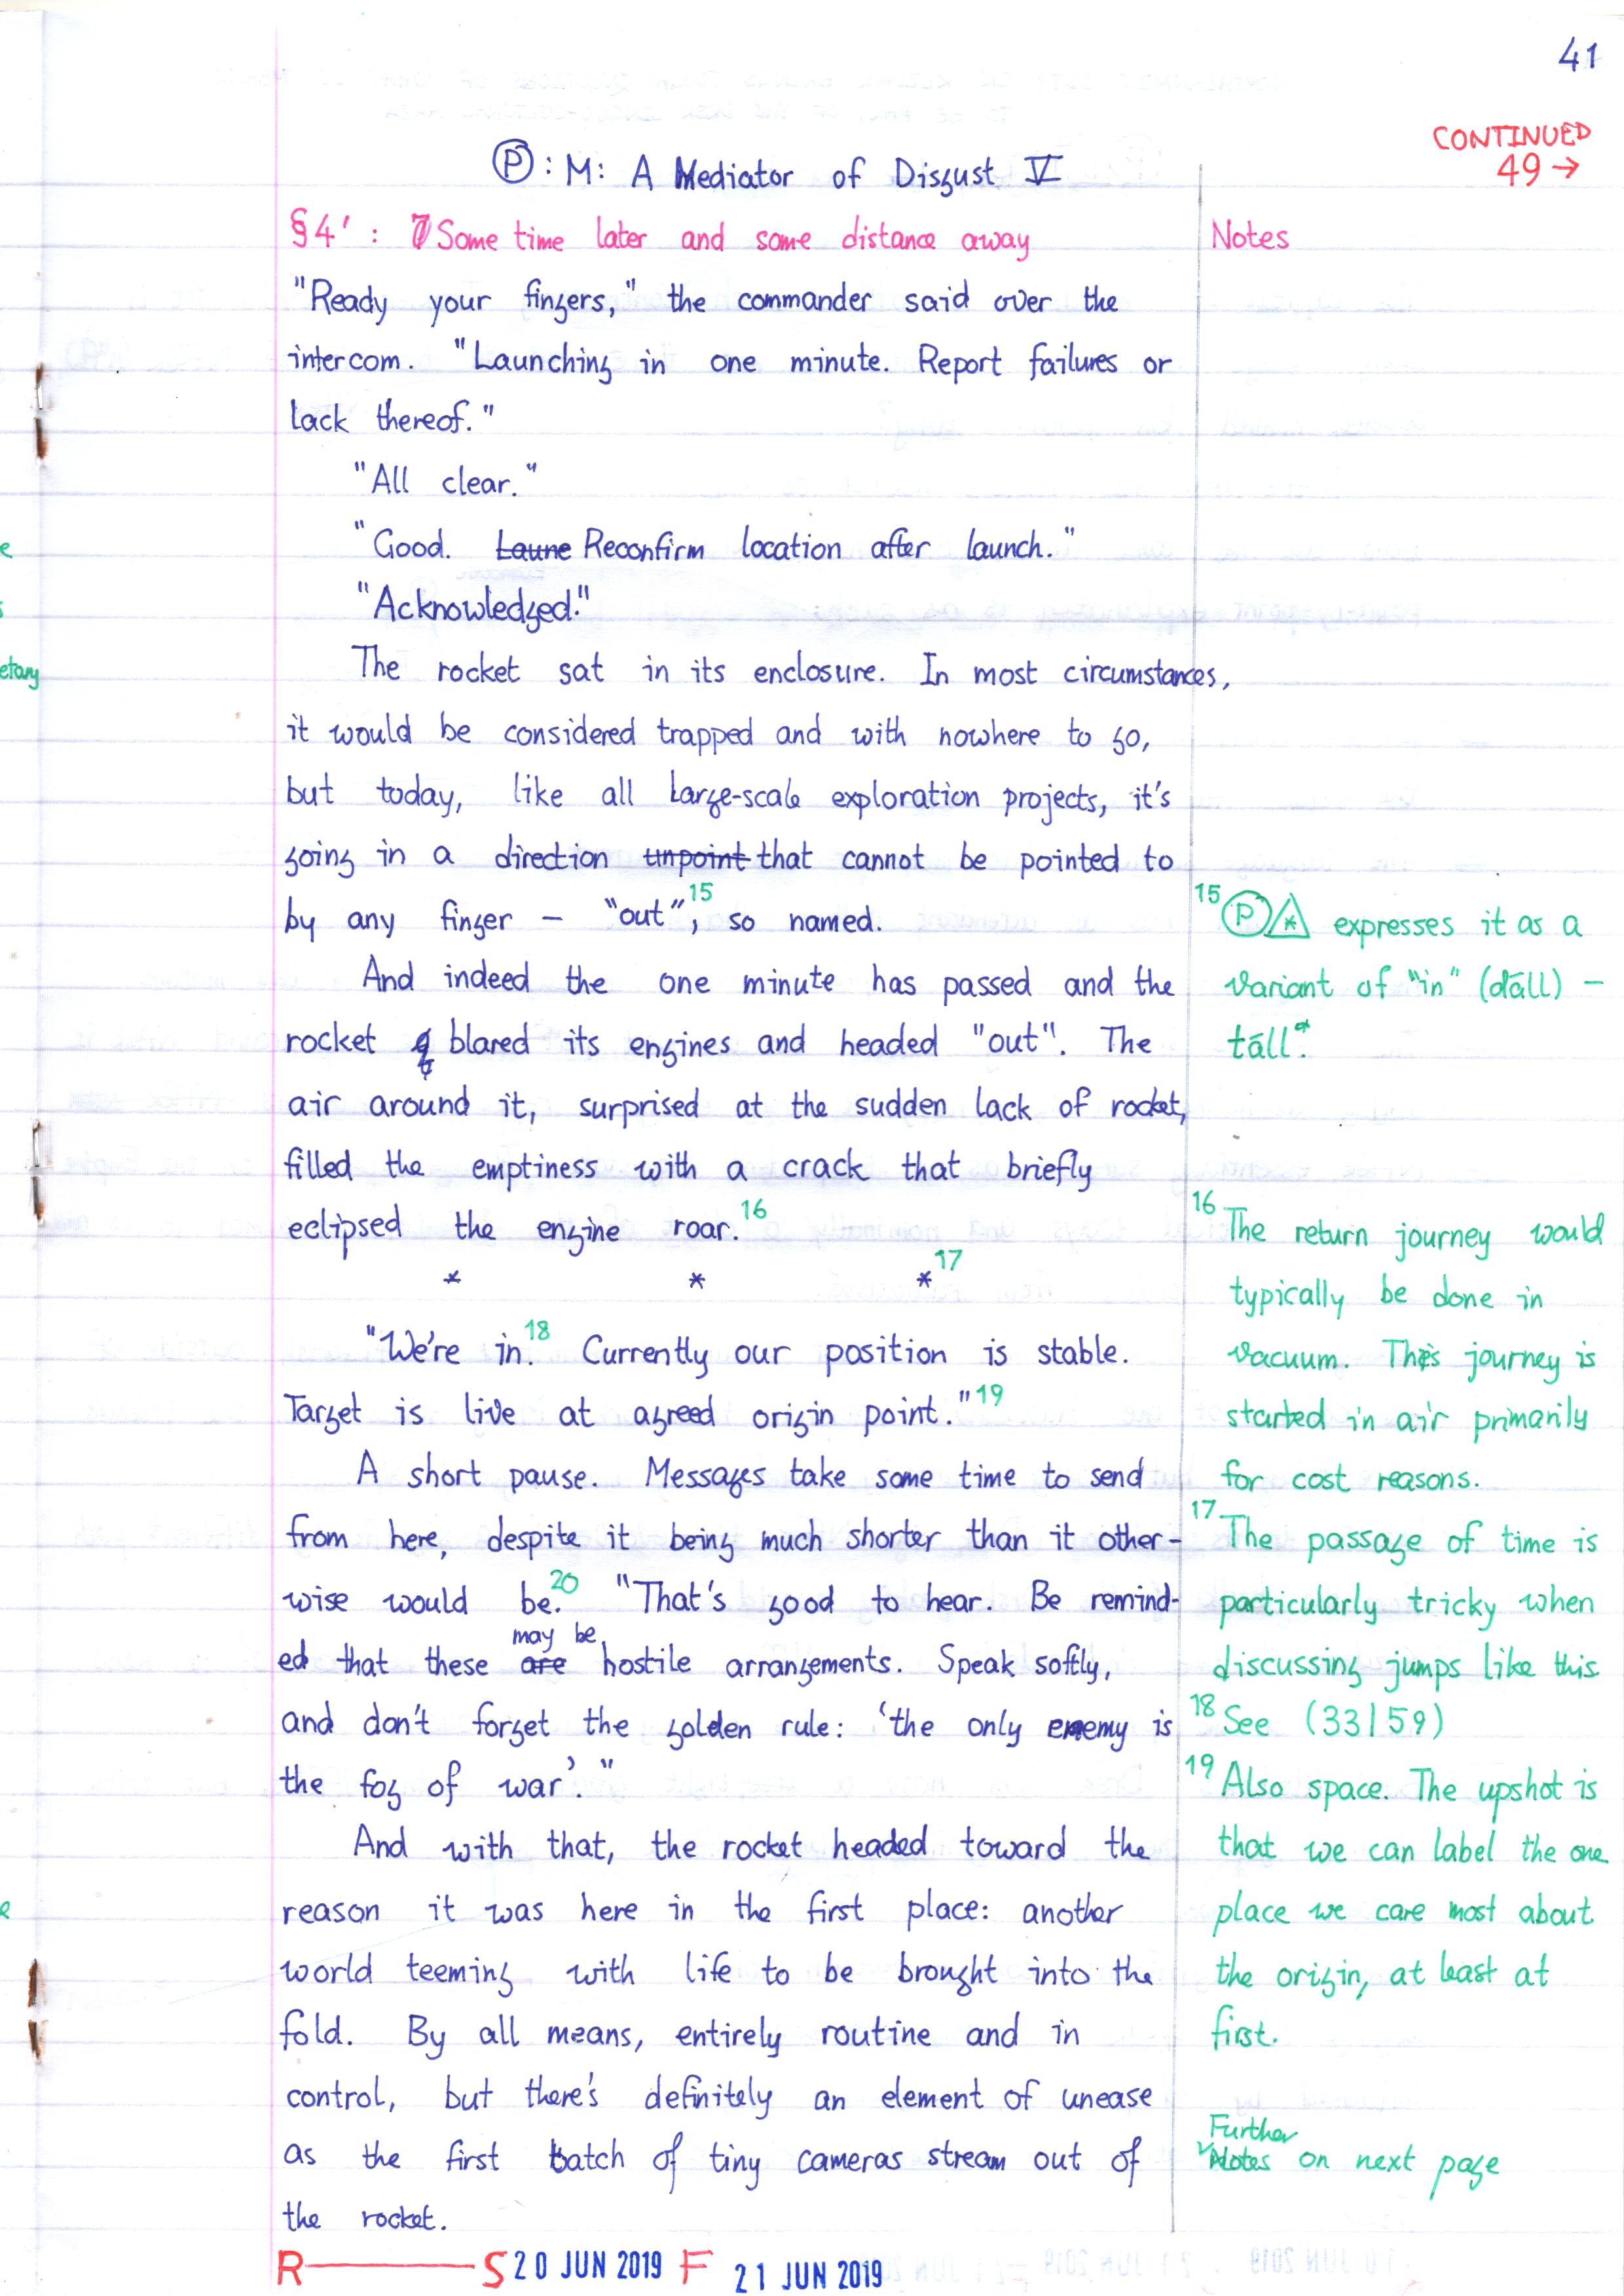 41
CONTINUED
49→
Ⓟ: M: A Mediator of Disgust V
§4': Some time later and some distance away
"Ready your fingers," the commander said over the
intercom. "Launching in one minute. Report failures or
lack thereof."
"All clear."
"Good. Laune Reconfirm location after launch."
"Acknowledged."
The rocket sat in its enclosure. In most circumstances,
it would be considered trapped and with nowhere to go,
but today, like all large-scale exploration projects, it's
going in a direction unpoint that cannot be pointed to
by any finger – "out",15 so named.
And indeed the one minute has passed and the
rocket blared its engines and headed "out". The
air around it, surprised at the sudden lack of rocket,
filled the emptiness with a crack that briefly
eclipsed the engine roar.16
* * *17
"We're in.18 Currently our position is stable.
Target is live at agreed origin point."19
A short pause. Messages take some time to send
from here, despite it being much shorter than it other-
wise would be.20 "That's good to hear. Be remind-
may be
ed that these are hostile arrangements. Speak softly,
and don't forget the golden rule: 'the only enemy is
the fog of war'."
And with that, the rocket headed toward the
reason it was here in the first place: another
world teeming with life to be brought into the
fold. By all means, entirely routine and in
control, but there's definitely an element of unease
as the first batch of tiny cameras stream out of
the rocket.
Notes
15 Ⓟ expresses it as a
variant of "in" (dāll) –
tāll.
16 The return journey would
typically be done in
vacuum. This journey is
started in air primarily
for cost reasons.
17 The passage of time is
particularly tricky when
discussing jumps like this
18 See (33|59)
19 Also space. The upshot is
that we can label the one
place we care most about
the origin, at least at
first.
Further
Notes on next page
etary
R S 20 JUN 2019 F 21 JUN 2019